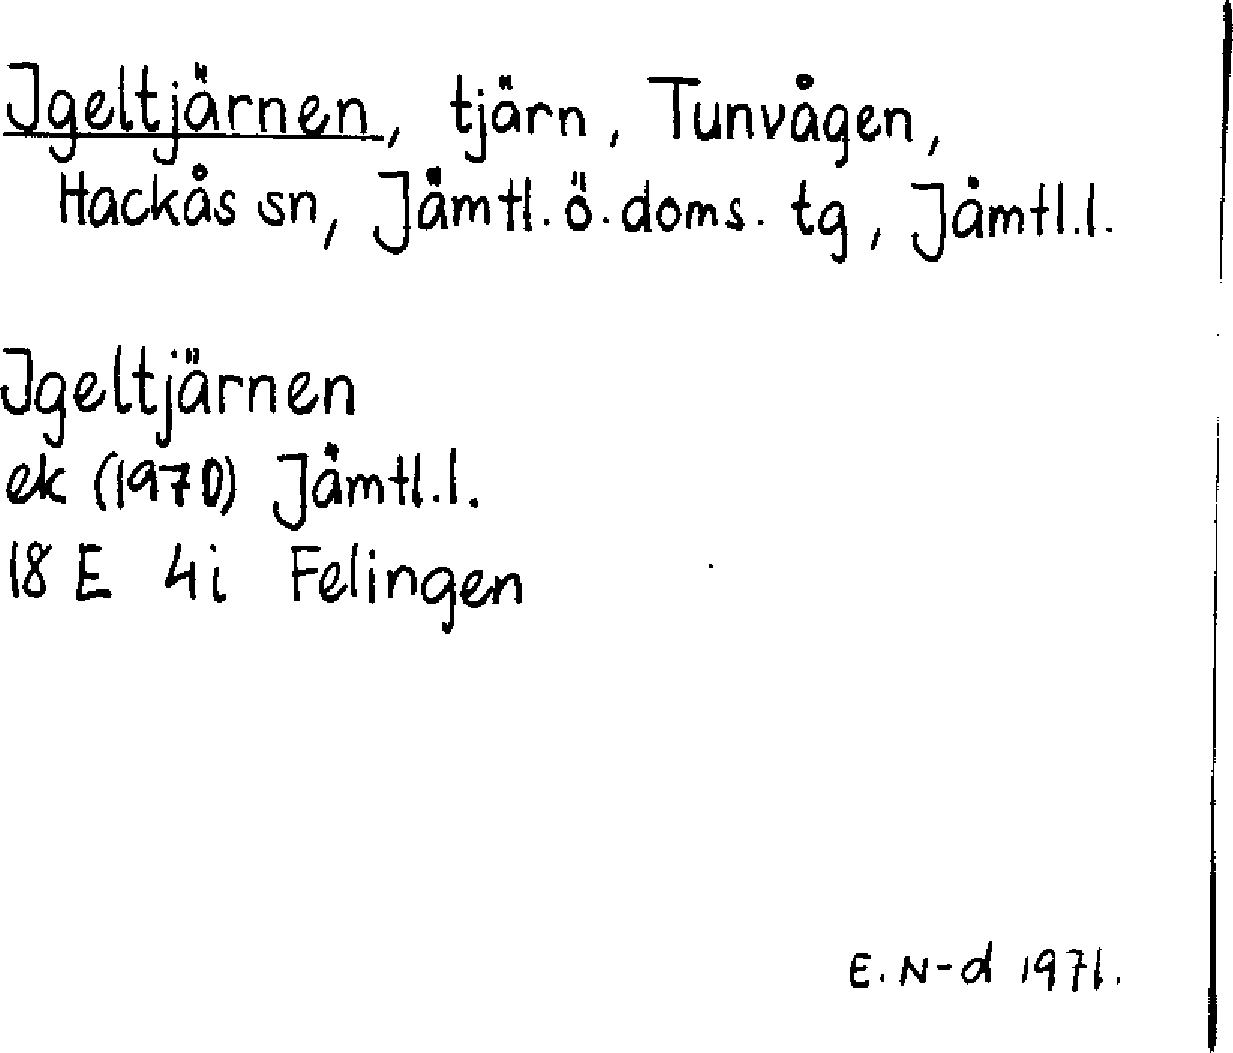 Igeltjärnen, tjärn, Tunvågen,
Hackås sn, Jämtl. ö. doms. tg, Jämtl.l.
Igeltjärnen
ek (1970) Jämtl.l.
18 E 4i Felingen
E. N-d 1971.